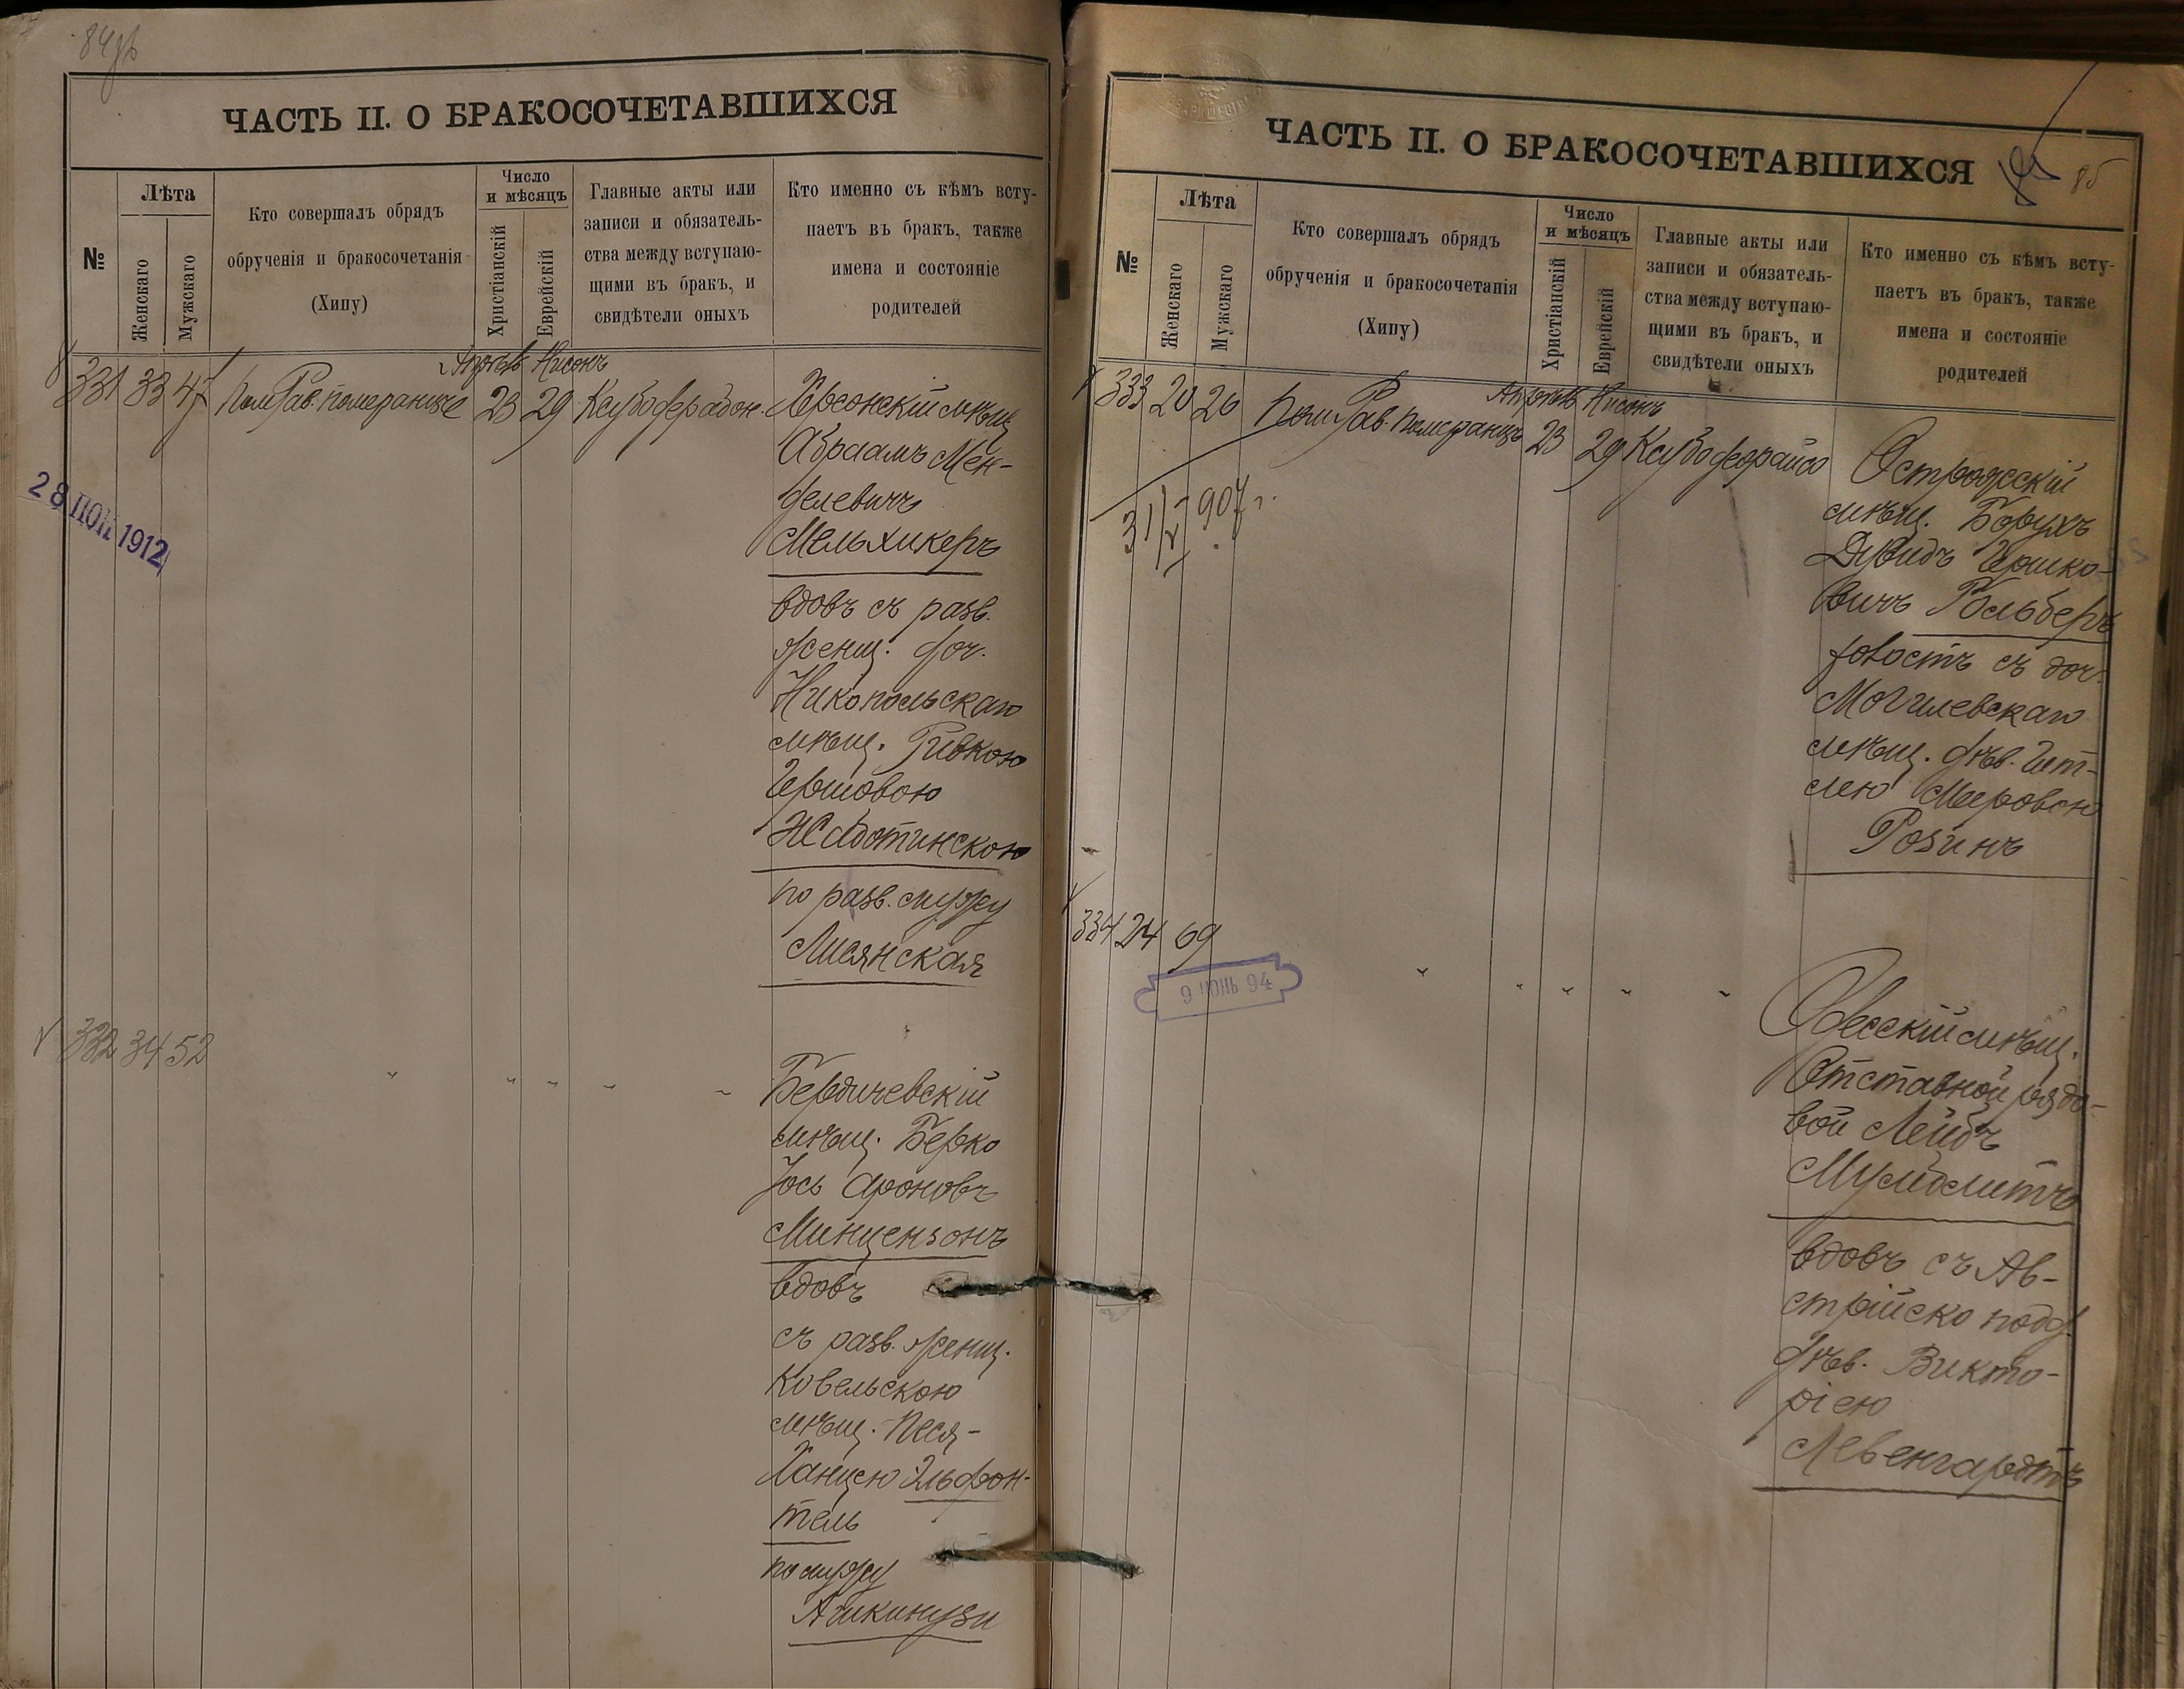 84 об
ЧАСТЬ II. О БРАКОСОЧЕТАВШИХСЯ
№
Лѣта
Женскаго
Мужскаго
Кто совершалъ обрядъ
обрученія и бракосочетанія
(Хипу)
Число
и мѣсяцъ
Христіанскій
Еврейскій
Главные акты или
записи и обязатель-
ства между вступаю-
щими въ бракъ, и
свидѣтели оныхъ
Кто именно съ кѣмъ всту-
паетъ въ бракъ, также
имена и состояніе
родителей
Апрѣль Нисонъ
331 33 47 Пом. Рав. Померанице 23 29 Ксубо
28 1912
Херсонскій мѣщ.
Абраамъ Мен-
делевичъ
Мельхикеръ
вдовъ съ разв.
женщ. доч.
Никопольскаго
мѣщ. Ривкою
Гершовою
Жаботинскою
по разв. мужу
Лисянская
332 34 52
Бердичевскій
мѣщ. Берко
Іось Ароновъ
Минцензонъ
вдовъ
съ разв. женщ.
Ковельскою
мѣщ. Песя-
Ханцею Эльфон-
тель
по мужу
Ашкинузи
85
ЧАСТЬ II. О БРАКОСОЧЕТАВШИХСЯ
№
Лѣта
Женскаго
Мужскаго
Кто совершалъ обрядъ
обрученія и бракосочетанія
(Хипу)
Число
и мѣсяцъ
Христіанскій
Еврейскій
Главные акты или
записи и обязатель-
ства между вступаю-
щими въ бракъ, и
свидѣтели оныхъ
Кто именно съ кѣмъ всту-
паетъ въ бракъ, также
имена и состояніе
родителей
Апрѣль Нисонъ
333 20 26 Пом. Рав. Помераницъ 23 29 Ксубо
31/V 907 г.
Острожскій
мѣщ. Борухъ
Дувидъ Гершко-
вичъ Гольберъ
холостъ съ доч.
Могилевскаго
мѣщ. дѣв. Гит-
лею Меровою
Розинъ
334 24 69
9 ІЮНЬ 94
Одесскій мѣщ.
Отставной рядо-
вой Лейбъ
вдовъ съ Ав-
стрійско подд.
дѣв. Викто-
ріею
Левенгардтъ